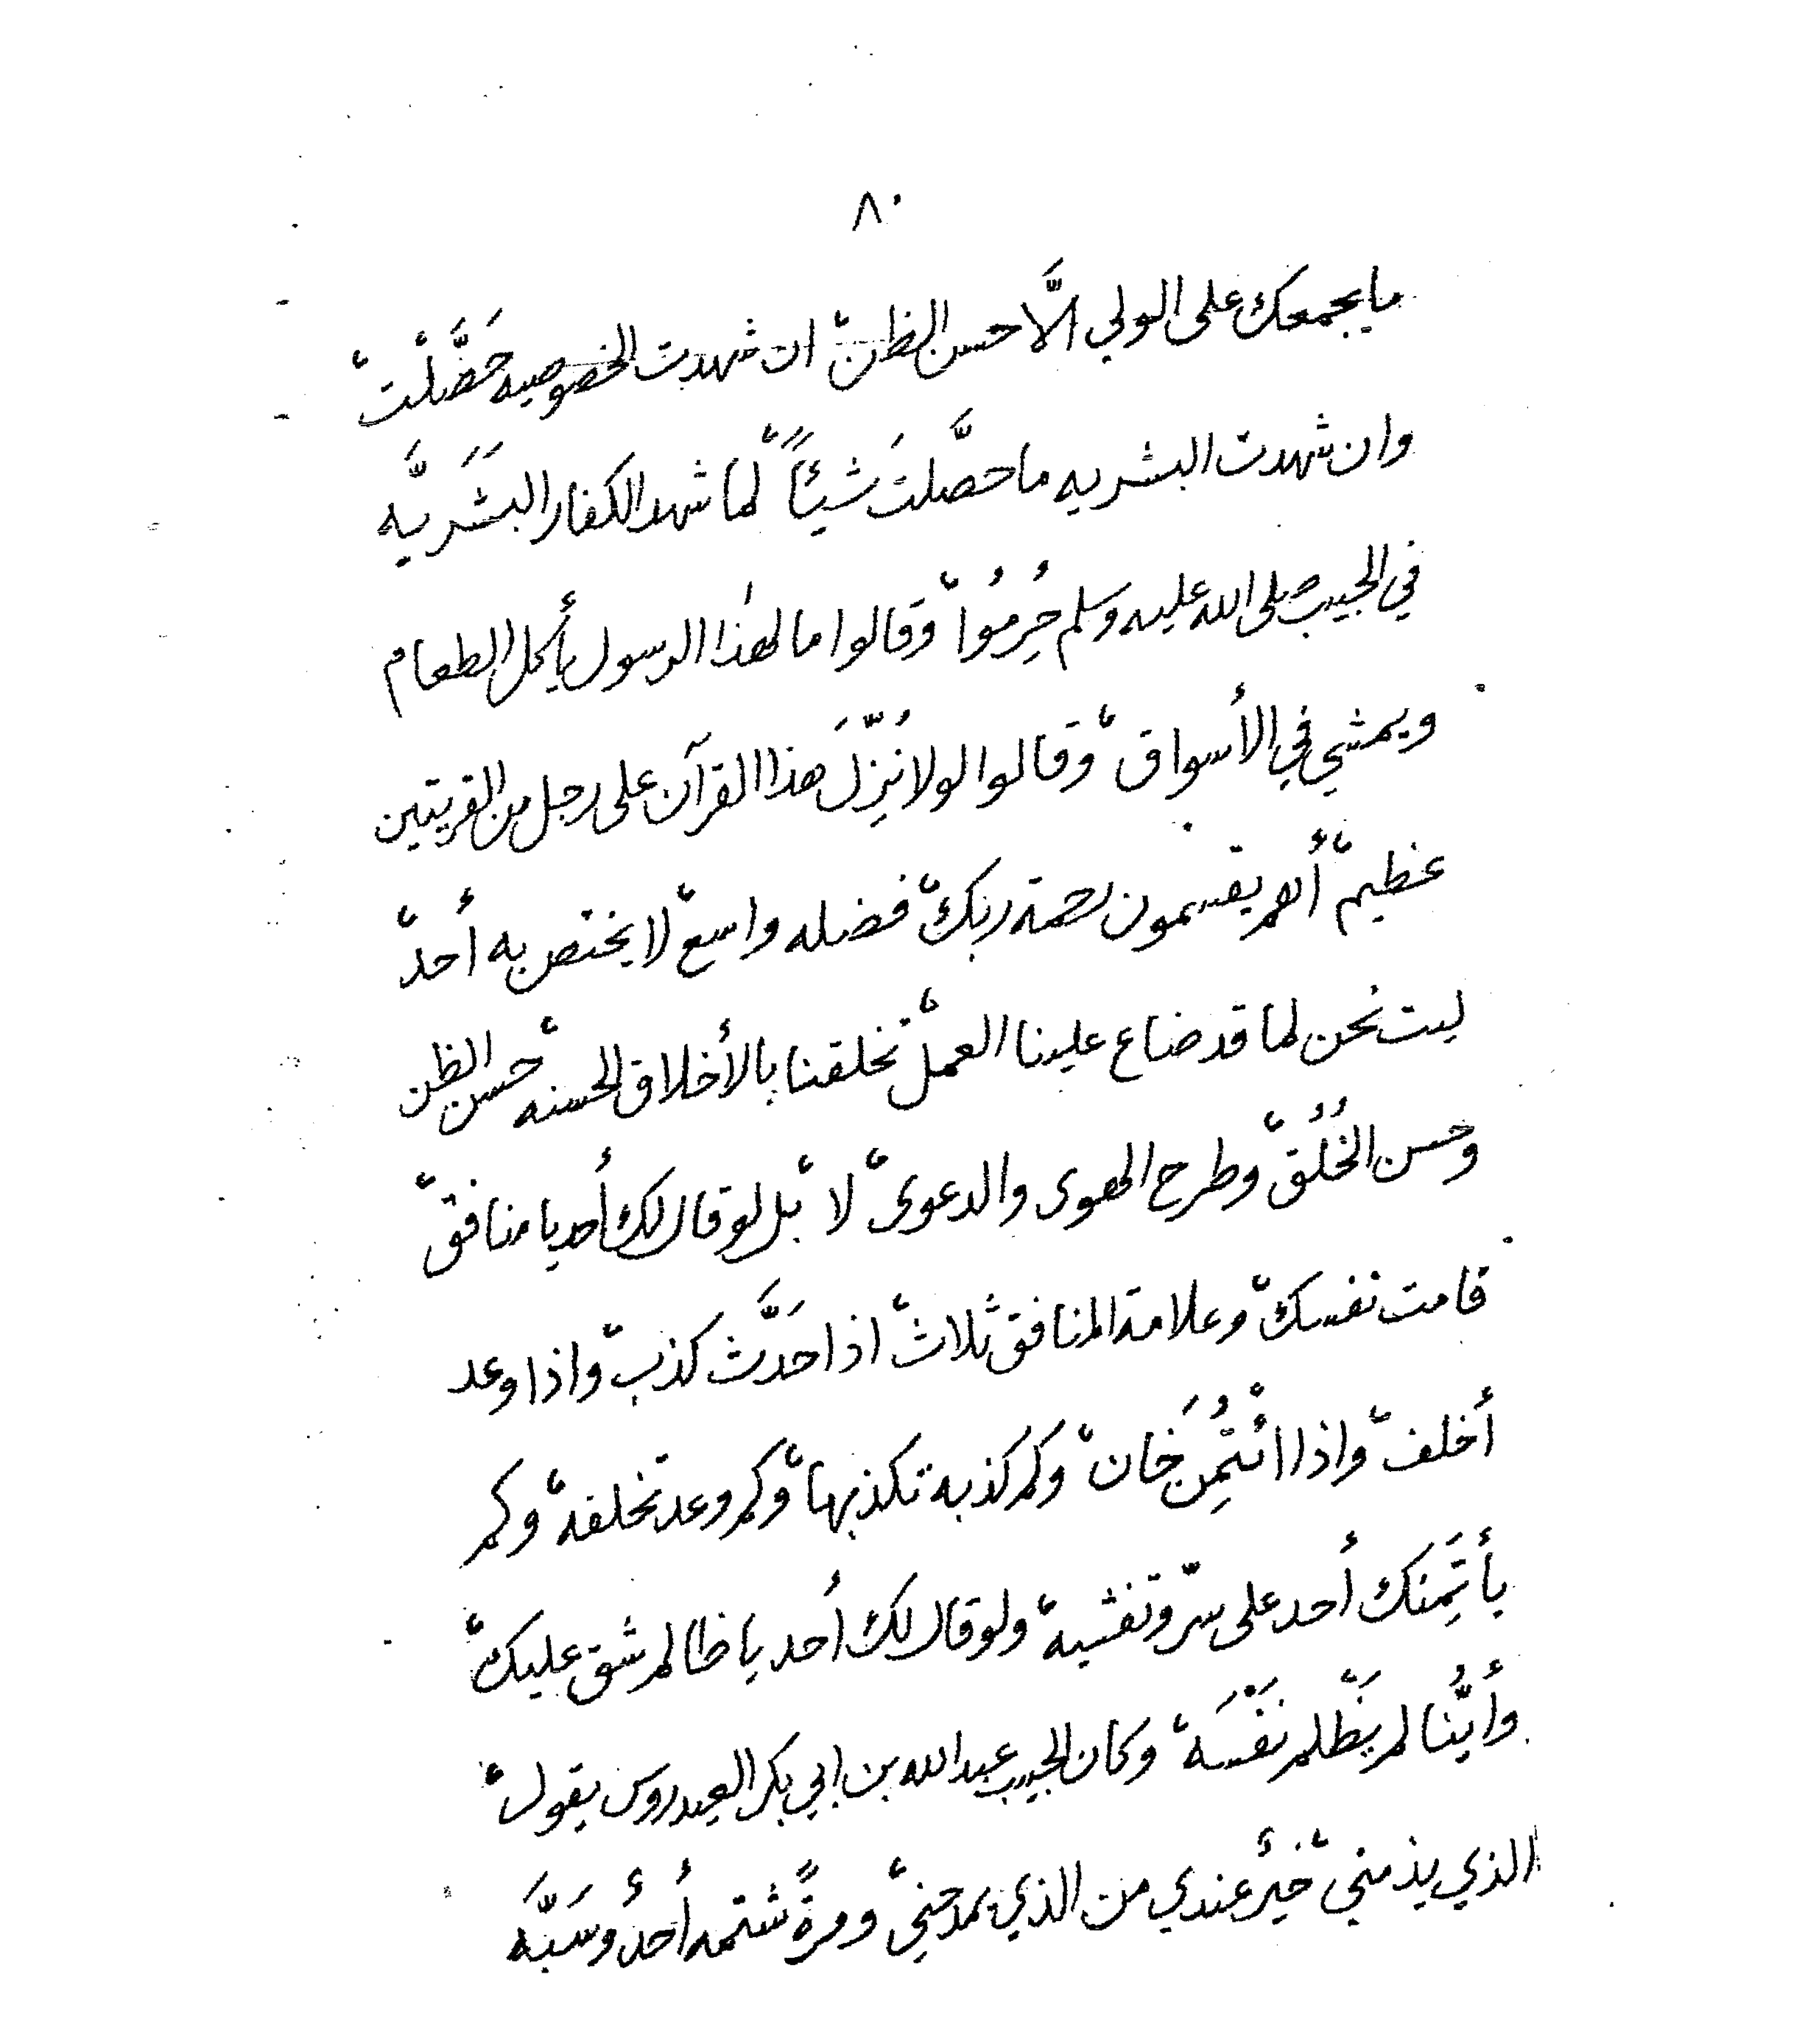 ٨٠
ما يجمعك على الولي الَّا حسن الظن، ان شهدت الخصوصيه حَصَّلْت،
وان شهدت البشريه ما حصَّلتَ شيئاً، لما شهد الكفار البَشَريَّه
في الحبيب صلى الله عليه وسلم حُرِمُوا، وقالوا ما لهٰذا الرسول يأكل الطعام
ويمشي في الأسواق، وقالوا لولا نُزِّلَ هذا القرآن على رجل من القريتين
عظيم، أهم يقسمون رحمة ربك، فضله واسع، لا يختص به أحد،
ليت نحن لما قد ضاع علينا العمل، تخلقنا بالأخلاق الحسنه، حسن الظن
وحسن الخُلُق، وطرح الهوى والدعوى، لا، بل لو قال لك أحد يا منافق،
قامت نفسك، وعلامة المنافق ثلاث، اذا حَدَّث كذب، واذا وعد
أخلف، واذا ائْتُمِنَ خان، وكم كذبه تكذبها، وكم وعد تخلفه، وكم
يأتَمِنَك أحد على سرّ وتفشيه، ولو قال لك أحد يا ظالم شق عليك،
وأيُّنا لم يَظْلم نَفْسَه، وكان الحبيب عبد الله بن ابي بكر العيدروس يقول،
الذي يذمني، خيرٌ عندي من الذي يمدحني، ومرةً شتمه أحدٌ وسَبَّه